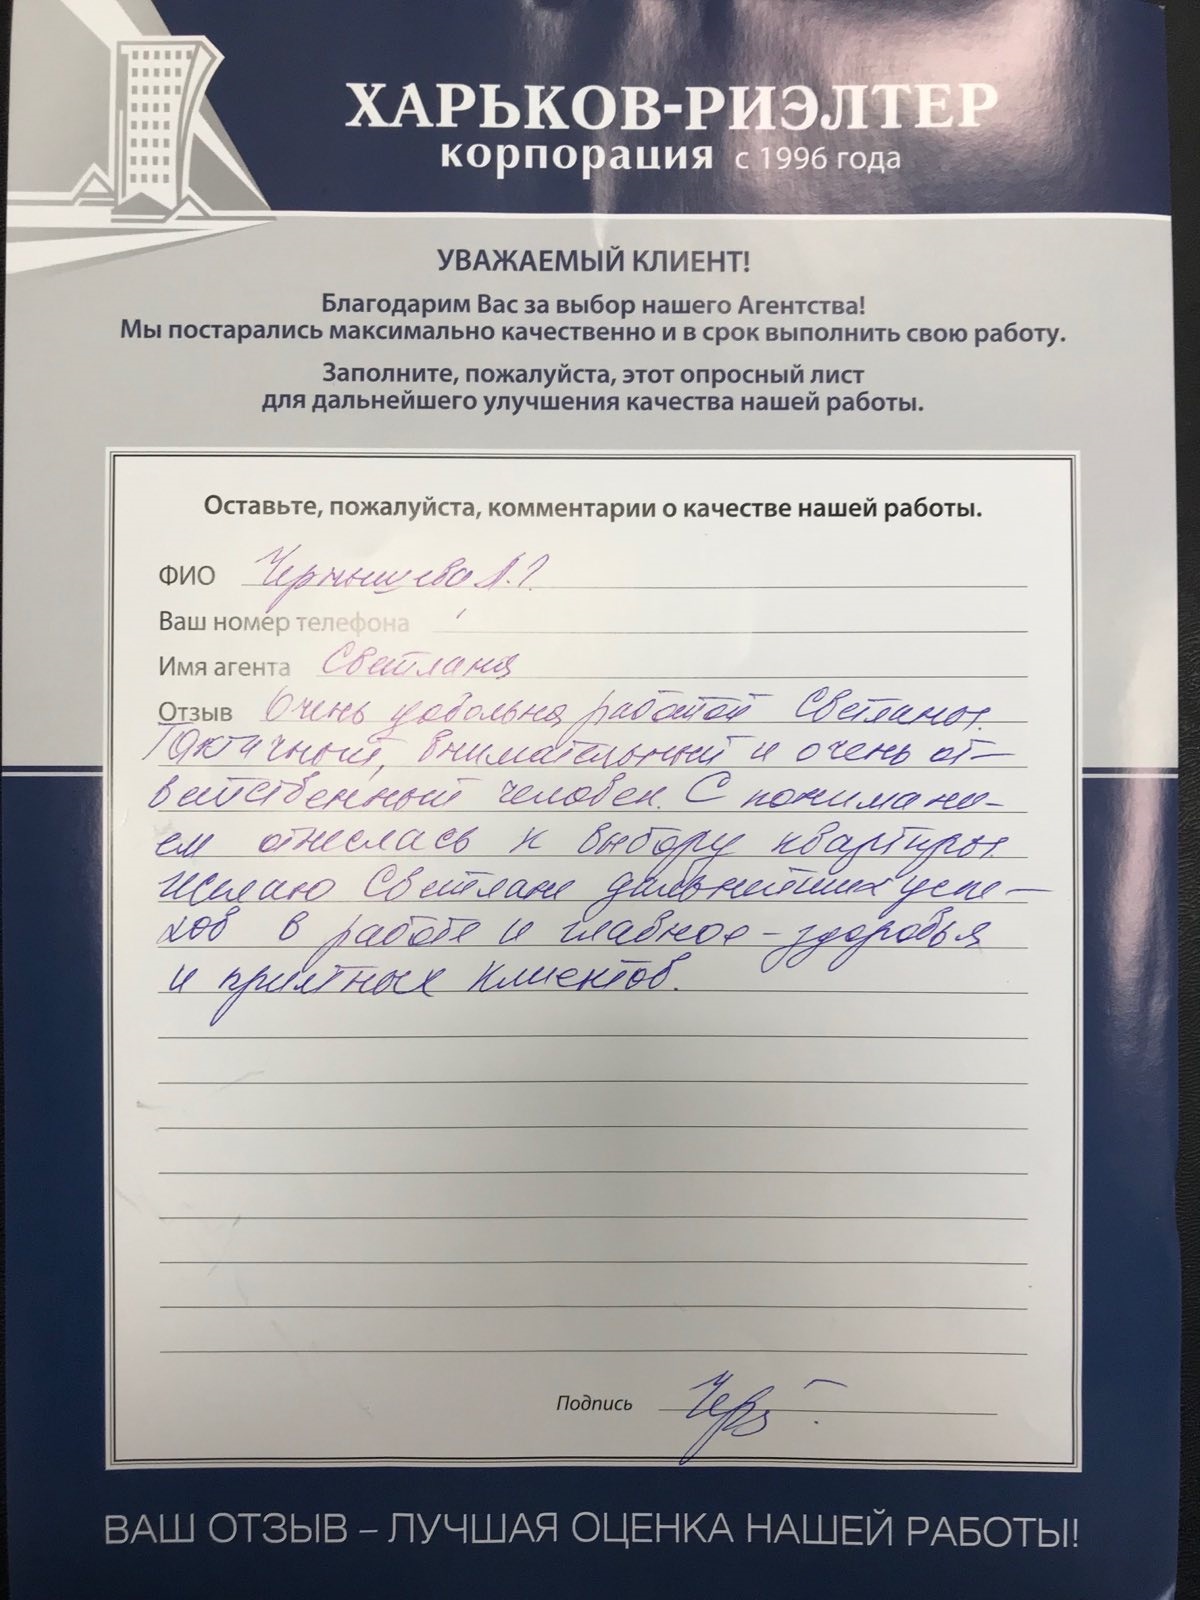 ХАРЬКОВ-РИЭЛТЕР
корпорация с 1996 года
УВАЖАЕМЫЙ КЛИЕНТ!
Благодарим Вас за выбор нашего Агентства!
Мы постарались максимально качественно и в срок выполнить свою работу.
Заполните, пожалуйста, этот опросный лист
для дальнейшего улучшения качества нашей работы.
Оставьте, пожалуйста, комментарии о качестве нашей работы.
ФИО Чернышева Л.Г.
Ваш номер телефона
Имя агента Светлана
Отзыв Очень довольна работой Светланы.
Тактичный, внимательный и очень от-
ветственный человек. С понимани-
ем отнеслась к выбору квартиры.
Желаю Светлане дальнейших успе-
хов в работе и главное - здоровья
и приятных клиентов.
Подпись
ВАШ ОТЗЫВ – ЛУЧШАЯ ОЦЕНКА НАШЕЙ РАБОТЫ!